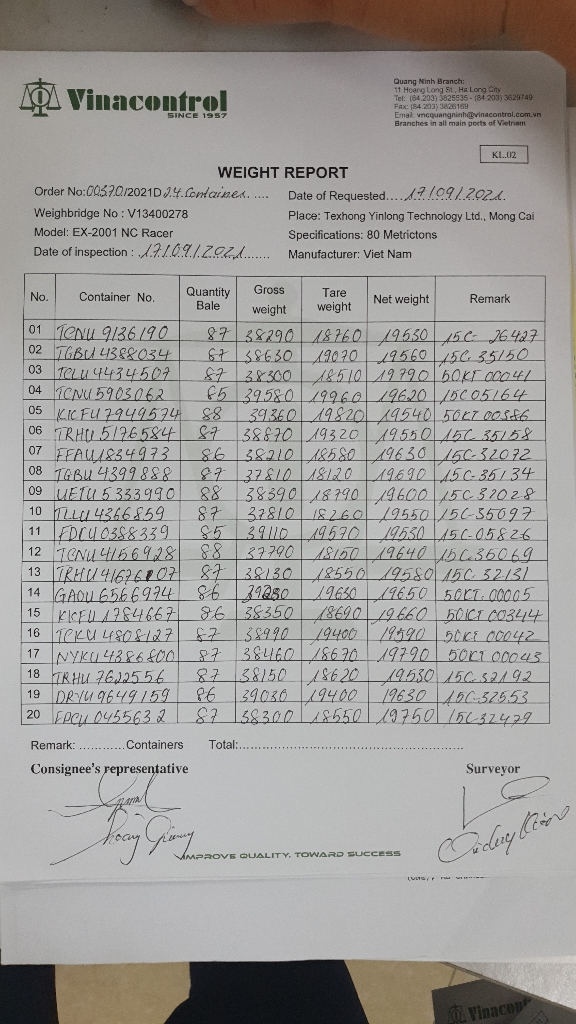 Vinacontrol
SINCE 1957
Quang Ninh Branch:
11 Hoang Long St., Ha Long City
Tel: (84.203) 3825535 - (84.203) 3829749
Fax: (84.203) 3826169
Email: vncquangninh@vinacontrol.com.vn
Branches in all main ports of Vietnam
KL.02
WEIGHT REPORT
Order No: 00570/2021D 24 Container.....
Date of Requested....17/09/2021.
Weighbridge No : V13400278
Place: Texhong Yinlong Technology Ltd., Mong Cai
Model: EX-2001 NC Racer
Specifications: 80 Metrictons
Date of inspection : .17/09/2021.......
Manufacturer: Viet Nam
No. Container No. Quantity Bale Gross weight Tare weight Net weight Remark
01 TCNU 9136190 87 38290 18760 19530 15C- 26427
02 TGBU 4388034 87 38630 19070 19560 15C. 35150
03 TCLU 4434507 87 38300 18510 19790 50KT 00041
04 TCNU 5903062 85 39580 19960 19620 15C 05164
05 KKFU 7949574 88 39360 19820 19540 50KT 00386
06 TRHU 5176584 87 38870 19320 19550 15C-35158
07 FFAU 1834973 86 38210 18580 19630 15C-32072
08 TGBU 4399888 87 37810 18120 19690 15C-35134
09 UETU 5333990 88 38390 18790 19600 15C-32028
10 TLLU 4366859 87 37810 18260 19550 15C-35097
11 FDCU 0388339 85 39110 19570 19530 15C-05826
12 TCNU 4156928 88 37790 18150 19640 15C.35069
13 TRHU 41676 07 87 38130 18550 19580 15C 32131
14 GAOU 6566974 86 39280 19630 19650 50KT.00005
15 KKFU 1784667 86 38350 18690 19660 50KT 00344
16 TCKU 4808127 87 38990 19400 19590 50KT 00042
17 NYKU 4386800 87 38460 18670 19790 50KT 00043
18 TRHU 7622556 87 38150 18620 19530 15C-32192
19 DRYU 9649159 86 39030 19400 19630 15C-32553
20 FDCU 0455632 87 38300 18550 19750 15C-32479
Remark: ............Containers Total:......................................................
Consignee's representative
Surveyor
IMPROVE QUALITY, TOWARD SUCCESS
Vinacont